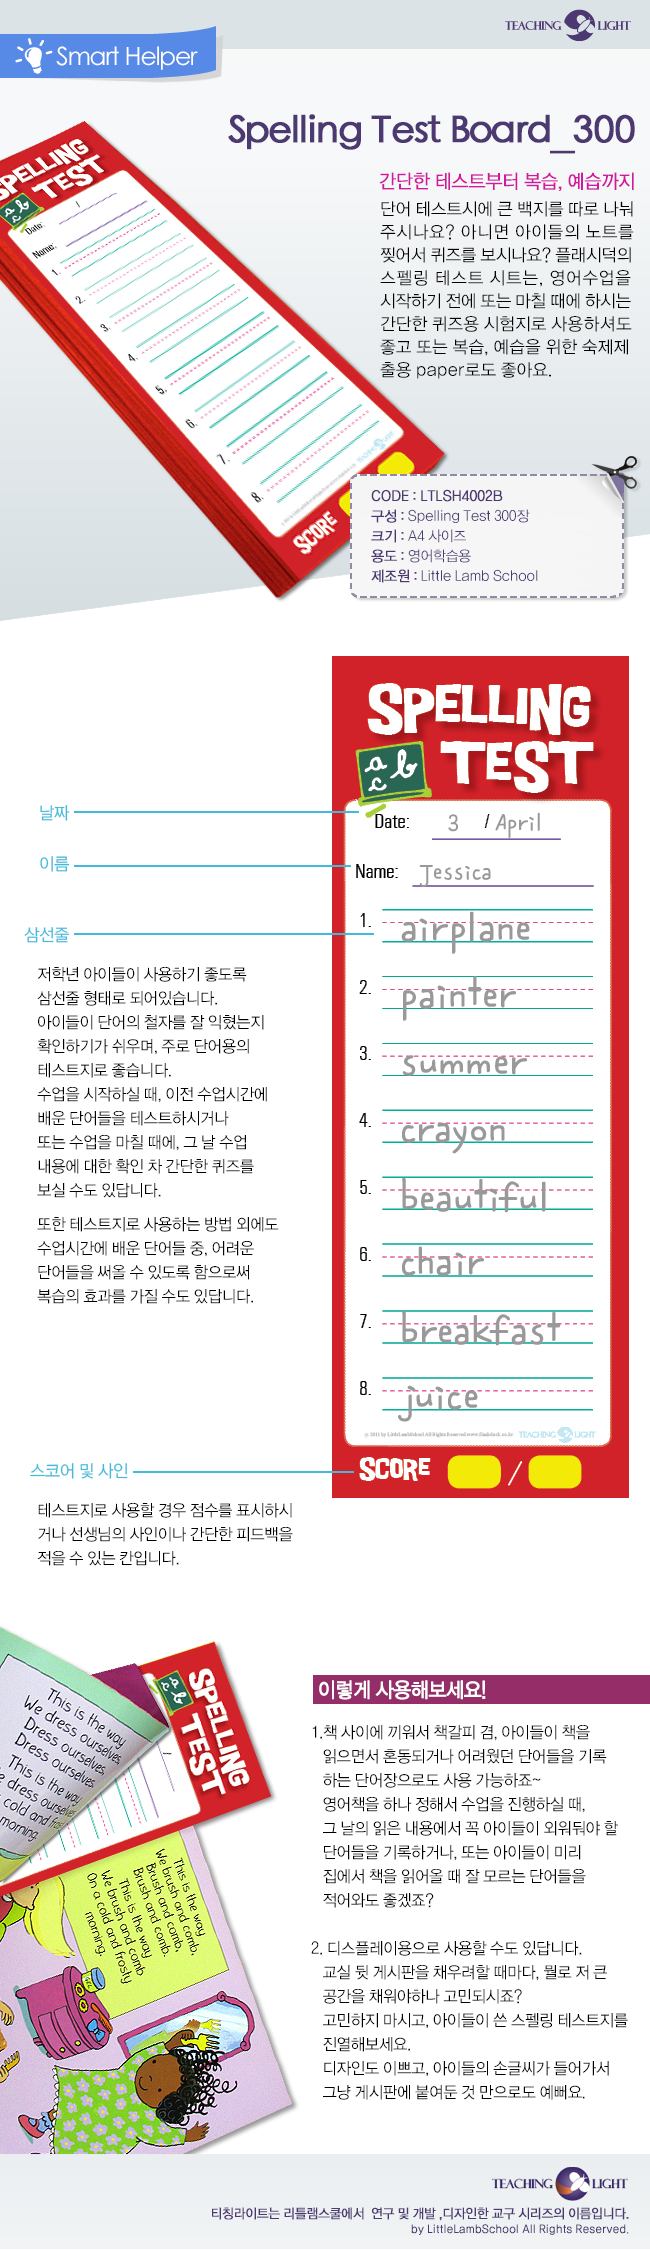 TEACHING LIGHT
Smart Helper
Spelling Test Board_300
간단한 테스트부터 복습, 예습까지
단어 테스트시에 큰 백지를 따로 나눠
주시나요? 아니면 아이들의 노트를
찢어서 퀴즈를 보시나요? 플래시덕의
스펠링 테스트 시트는, 영어수업을
시작하기 전에 또는 마칠 때에 하시는
간단한 퀴즈용 시험지로 사용하셔도
좋고 또는 복습, 예습을 위한 숙제제
출용 paper로도 좋아요.
SPELLING
TEST
abc
Date: /
Name:
1.
2.
3.
4.
5.
6.
7.
8.
SCORE
CODE : LTLSH4002B
구성 : Spelling Test 300장
크기 : A4 사이즈
용도 : 영어학습용
제조원 : Little Lamb School
SPELLING
TEST
a b c
날짜
Date: 3 / April
이름
Name: Jessica
삼선줄
1. airplane
2. painter
3. summer
4. crayon
5. beautiful
6. chair
7. breakfast
8. juice
TEACHING LIGHT
SCORE /
저학년 아이들이 사용하기 좋도록
삼선줄 형태로 되어있습니다.
아이들이 단어의 철자를 잘 익혔는지
확인하기가 쉬우며, 주로 단어용의
테스트지로 좋습니다.
수업을 시작하실 때, 이전 수업시간에
배운 단어들을 테스트하시거나
또는 수업을 마칠 때에, 그 날 수업
내용에 대한 확인 차 간단한 퀴즈를
보실 수도 있답니다.
또한 테스트지로 사용하는 방법 외에도
수업시간에 배운 단어들 중, 어려운
단어들을 써올 수 있도록 함으로써
복습의 효과를 가질 수도 있답니다.
스코어 및 사인
테스트지로 사용할 경우 점수를 표시하시
거나 선생님의 사인이나 간단한 피드백을
적을 수 있는 칸입니다.
This is the way
We dress ourselves,
Dress ourselves,
Dress ourselves.
This is the way
We dress ourselves
cold and frosty
morning.
SPELLING
TEST
This is the way
We brush and comb,
Brush and comb,
Brush and comb.
This is the way
We brush and comb
On a cold and frosty
morning.
이렇게 사용해보세요!
1.책 사이에 끼워서 책갈피 겸, 아이들이 책을
읽으면서 혼동되거나 어려웠던 단어들을 기록
하는 단어장으로도 사용 가능하죠~
영어책을 하나 정해서 수업을 진행하실 때,
그 날의 읽은 내용에서 꼭 아이들이 외워둬야 할
단어들을 기록하거나, 또는 아이들이 미리
집에서 책을 읽어올 때 잘 모르는 단어들을
적어와도 좋겠죠?
2. 디스플레이용으로 사용할 수도 있답니다.
교실 뒷 게시판을 채우려할 때마다, 뭘로 저 큰
공간을 채워야하나 고민되시죠?
고민하지 마시고, 아이들이 쓴 스펠링 테스트지를
진열해보세요.
디자인도 이쁘고, 아이들의 손글씨가 들어가서
그냥 게시판에 붙여둔 것 만으로도 예뻐요.
TEACHING LIGHT
티칭라이트는 리틀램스쿨에서 연구 및 개발 ,디자인한 교구 시리즈의 이름입니다.
by LittleLambSchool All Rights Reserved.